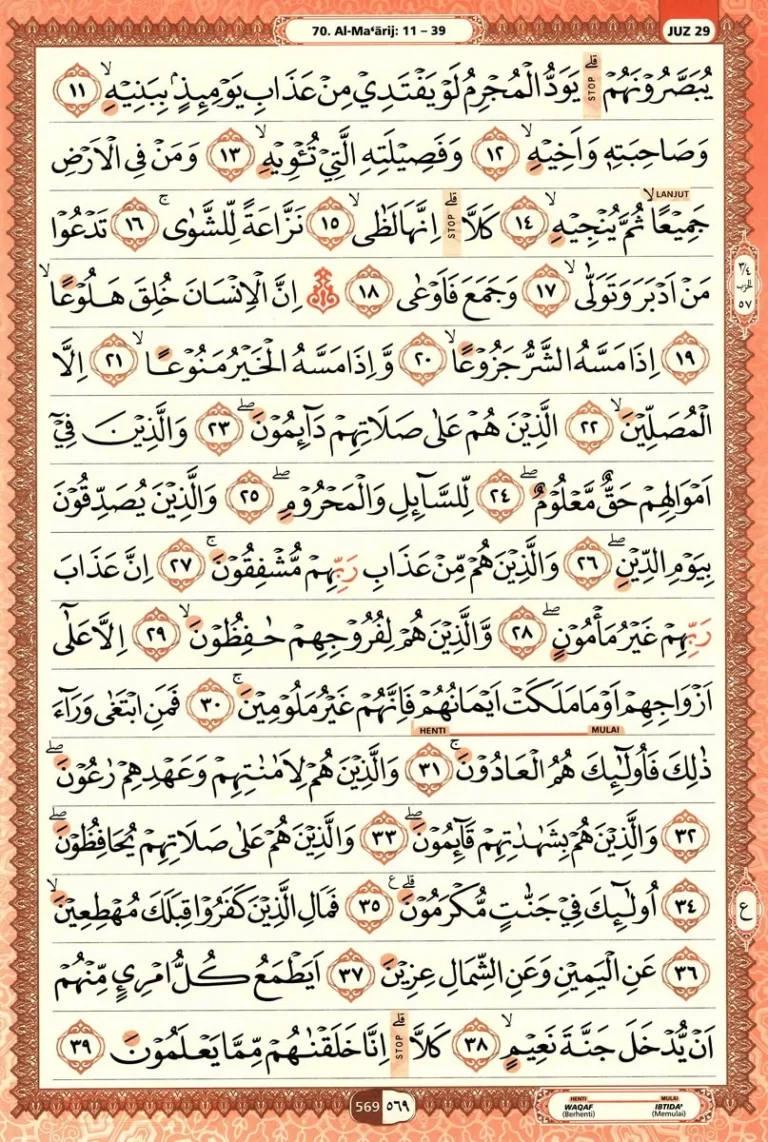 70. Al-Ma‘ārij: 11 – 39
JUZ 29
يُبَصَّرُوْنَهُمْۗ يَوَدُّ الْمُجْرِمُ لَوْ يَفْتَدِيْ مِنْ عَذَابِ يَوْمِىِٕذٍۢ بِبَنِيْهِۙ ١١
STOP
وَصَاحِبَتِهٖ وَاَخِيْهِۙ ١٢ وَفَصِيْلَتِهِ الَّتِيْ تُـْٔوِيْهِۙ ١٣ وَمَنْ فِى الْاَرْضِ
LANJUT
جَمِيْعًاۙ ثُمَّ يُنْجِيْهِۙ ١٤ كَلَّاۗ اِنَّهَا لَظٰىۙ ١٥ نَزَّاعَةً لِّلشَّوٰىۚ ١٦ تَدْعُوْا
STOP
مَنْ اَدْبَرَ وَتَوَلّٰىۙ ١٧ وَجَمَعَ فَاَوْعٰى ١٨ ۞ اِنَّ الْاِنْسَانَ خُلِقَ هَلُوْعًاۙ
٣/٤
الحزب
٥٧
١٩ اِذَا مَسَّهُ الشَّرُّ جَزُوْعًاۙ ٢٠ وَّاِذَا مَسَّهُ الْخَيْرُ مَنُوْعًاۙ ٢١ اِلَّا
الْمُصَلِّيْنَۙ ٢٢ الَّذِيْنَ هُمْ عَلٰى صَلَاتِهِمْ دَاۤىِٕمُوْنَۖ ٢٣ وَالَّذِيْنَ فِيْٓ
اَمْوَالِهِمْ حَقٌّ مَّعْلُوْمٌۖ ٢٤ لِّلسَّاۤىِٕلِ وَالْمَحْرُوْمِۖ ٢٥ وَالَّذِيْنَ يُصَدِّقُوْنَ
بِيَوْمِ الدِّيْنِۖ ٢٦ وَالَّذِيْنَ هُمْ مِّنْ عَذَابِ رَبِّهِمْ مُّشْفِقُوْنَۚ ٢٧ اِنَّ عَذَابَ
رَبِّهِمْ غَيْرُ مَأْمُوْنٍۖ ٢٨ وَّالَّذِيْنَ هُمْ لِفُرُوْجِهِمْ حٰفِظُوْنَۙ ٢٩ اِلَّا عَلٰٓى
اَزْوَاجِهِمْ اَوْ مَا مَلَكَتْ اَيْمَانُهُمْ فَاِنَّهُمْ غَيْرُ مَلُوْمِيْنَۚ ٣٠ فَمَنِ ابْتَغٰى وَرَاۤءَ
HENTI MULAI
ذٰلِكَ فَاُولٰۤىِٕكَ هُمُ الْعَادُوْنَۚ ٣١ وَالَّذِيْنَ هُمْ لِاَمٰنٰتِهِمْ وَعَهْدِهِمْ رٰعُوْنَۖ
٣٢ وَالَّذِيْنَ هُمْ بِشَهٰدٰتِهِمْ قَاۤىِٕمُوْنَۖ ٣٣ وَالَّذِيْنَ هُمْ عَلٰى صَلَاتِهِمْ يُحَافِظُوْنَۖ
٣٤ اُولٰۤىِٕكَ فِيْ جَنّٰتٍ مُّكْرَمُوْنَۗ ࣖ ٣٥ فَمَالِ الَّذِيْنَ كَفَرُوْا قِبَلَكَ مُهْطِعِيْنَۙ
ع
٣٦ عَنِ الْيَمِيْنِ وَعَنِ الشِّمَالِ عِزِيْنَ ٣٧ اَيَطْمَعُ كُلُّ امْرِئٍ مِّنْهُمْ
اَنْ يُّدْخَلَ جَنَّةَ نَعِيْمٍۙ ٣٨ كَلَّاۗ اِنَّا خَلَقْنٰهُمْ مِّمَّا يَعْلَمُوْنَ ٣٩
STOP
569 ٥٦٩
HENTI MULAI
WAQAF IBTIDA'
(Berhenti) (Memulai)